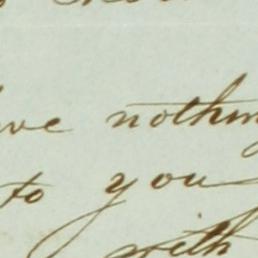 ve nothin
to you
with